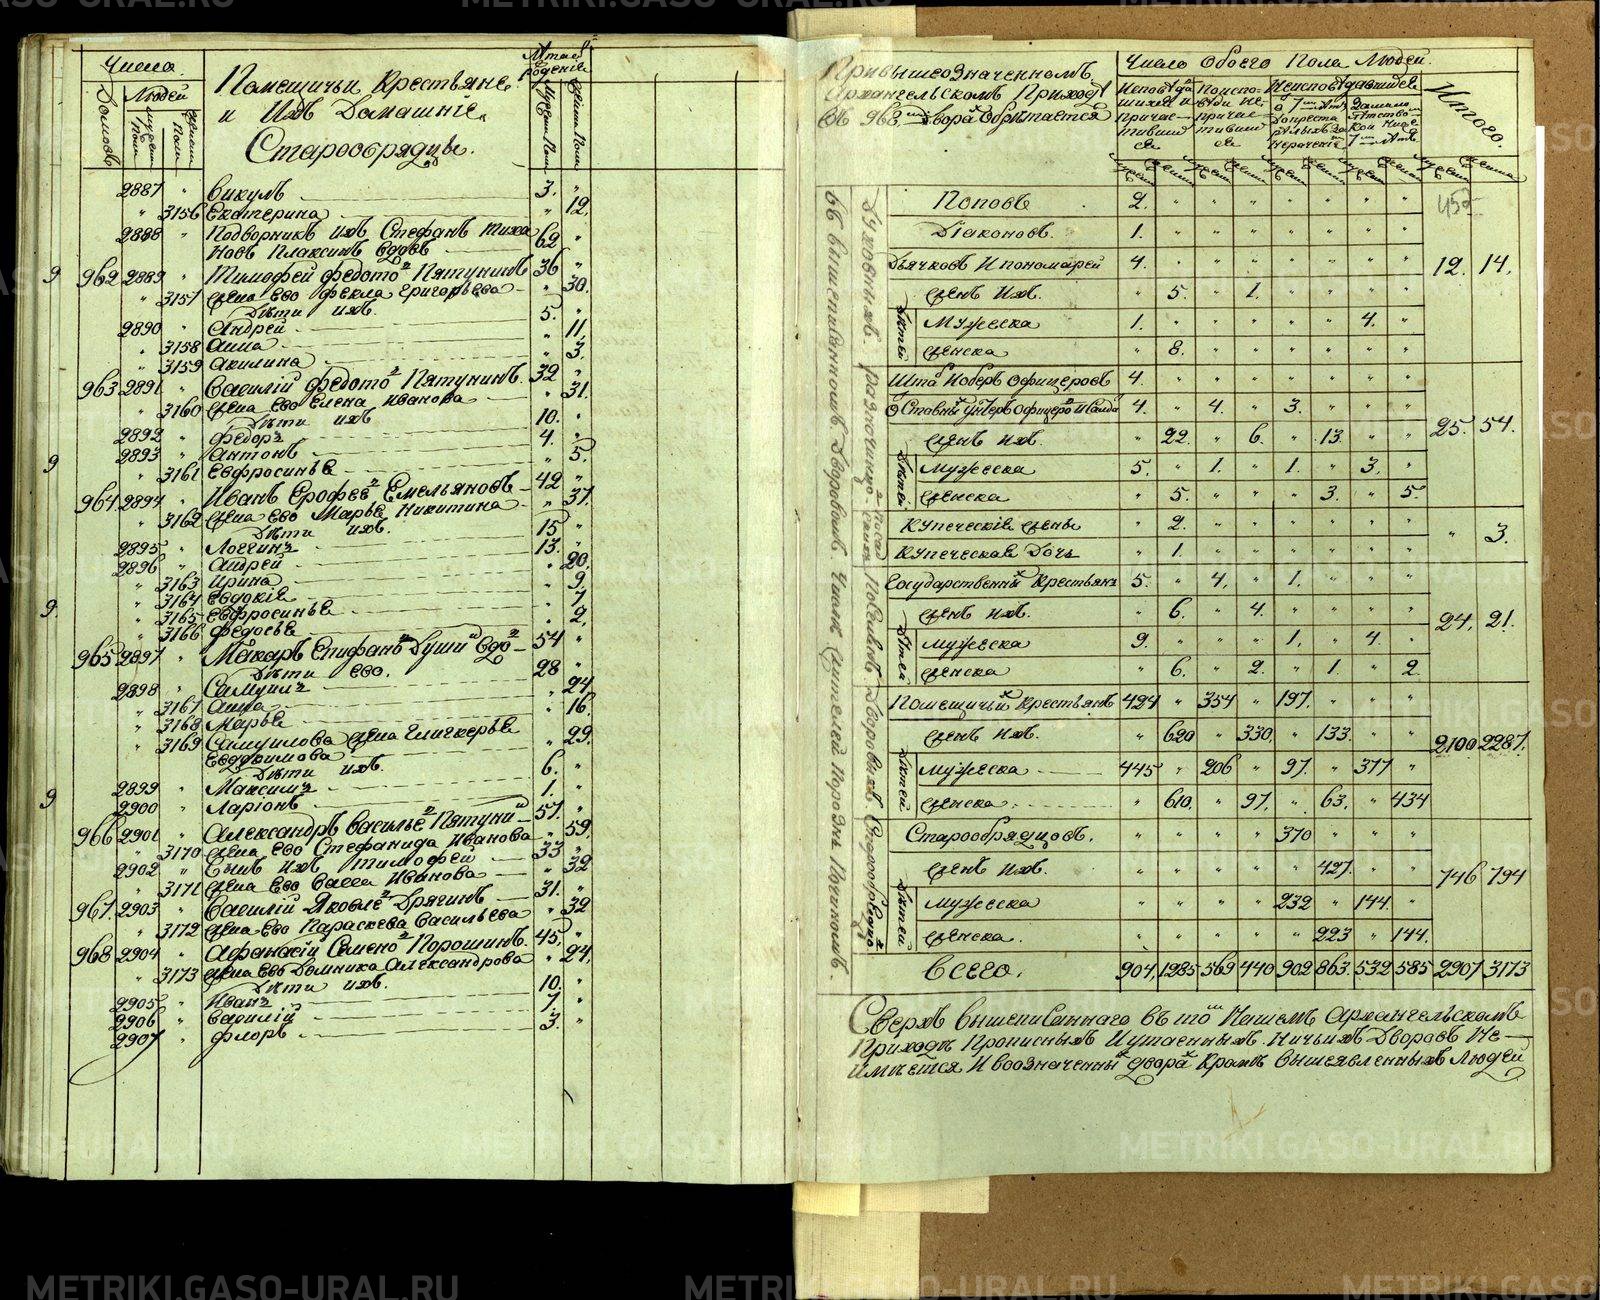 Числа
Людей
Домовъ
мужеск полъ
женск полъ
Помещичьи крестьяне
и ихъ домашние
Старообрядцы.
Лета от рождения
Мужеск пол
женска пола
2887 " Викулъ 3. "
" 3156 Екатерина " 12.
2888 " Подворникъ ихъ Стефанъ Тихо
новъ Плаксинъ вдовъ 62 "
962 2889 " Тимофей Федото Пятунинъ 36 "
" 3157 жена его Фекла Григорьева " 30.
Дѣти ихъ.
2890 " Андрей 5. "
" 3158 Анна " 11.
" 3159 Акилина " 3.
963 2891 " Василий Федото Пятунинъ 32 "
" 3160 жена его Елена Иванова " 31.
Дѣти ихъ
2892 " Федоръ 10. "
2893 " Антонъ 4. "
" 3161 Евфросинья " 5.
964 2894 " Иванъ Ерофее Емельяновъ 42 "
" 3162 жена его Марья Никитина " 37.
Дѣти ихъ.
2895 " Логгинъ 15 "
2896 " Андрей 13. "
" 3163 Ирина " 20.
" 3164 Евдокия " 9.
" 3165 Евфросинья " 7
" 3166 Федосья " 2.
965 2897 " Макаръ Епифанъ Душин вдо 54 "
Дѣти его.
2898 " Самуилъ 28 "
" 3167 Анна " 24
" 3168 Марья " 16.
" 3169 Самуилова жена Гликерья
Евдокимова " 29.
Дѣти ихъ.
2899 " Максимъ 6. "
2900 " Ларионъ 1. "
966 2901 " Александръ Василье Пятуни 57. "
" 3170 жена его Стефанида Иванова " 59.
2902 " Сынъ ихъ Тимофей 33 "
" 3171 жена его Васса Иванова " 32
967 2903 " Василий Яковле Дрягинъ 31. "
" 3172 жена его Параскева Васильева " 32
968 2904 " Афанасий Семено Порошинъ. 45. "
" 3173 жена его Домника Александрова " 24.
Дѣти ихъ.
2905 " Иванъ 10. "
2906 " Василий 7 "
2907 " Флоръ 3. "
9
9
9.
9
При вышеозначенномъ
Архангельскомъ Приходѣ
въ 968 дворах обретается
Число обоего пола людей.
Исповѣда
шихся и
причас
тивших
ся
Поиспо
вѣди не
причас
тивших
ся
Неисповѣдавшихся
Итого.
мужеск женск мужеск женск мужеск женск мужеск женск мужеск женска
Поповъ 2. " " " " " " "
Диаконовъ. 1. " " " " " " "
Дьячковъ и пономарей 4. " " " " " " " 12. 14.
женъ ихъ. " 5. " 1. " " " "
Дѣтей
Мужеска 1. " " " " " 4. "
женска " 8. " " " " " "
Шта и оберъ офицеровъ 4. " " " " " " "
Отставны унтеръ офицеро и солда 4. " 4. " 3. " " " 25. 54.
женъ ихъ. " 22. " 6. " 13. " "
Дѣтей
Мужеска 5. " 1. " 1. " 3. "
женска " 5. " " " 3. " 5.
Купеческие жены " 2. " " " " " " " 3.
Купеческая дочь " 1. " " " " " "
Государственны крестьянъ 5. " 4. " 1. " " "
женъ ихъ. " 6. " 4. " " " " 24. 21.
Дѣтей
Мужеска 9. " " " 1. " 4. "
женска " 6. " 2. " 1. " 2.
Помещичьи крестьянъ 424 " 354 " 197. " " "
женъ ихъ. " 620 " 330. " 133. " " 2100 2287.
Дѣтей
Мужеска 445 " 206 " 97. " 377 "
женска. " 610. " 97. " 63. " 434
Старообрядцовъ. " " " " 370 " " "
женъ ихъ. " " " " " 427. " " 746 794
Дѣтей
Мужеска " " " " 232 " 144. "
женска. " " " " " 223 " 144.
Всего. 904. 1285 569 440 902 863. 532 585 2907 3173
Сверхъ вышеписаннаго въ то нашемъ Архангельскомъ
Приходѣ прописныхъ и утаенныхъ ничьихъ дворовъ не
имѣется и в означенны двора кромѣ вышеявленныхъ людей
METRIKI.GASO-URAL.RU
METRIKI.GASO-URAL.RU
METRIKI.GASO